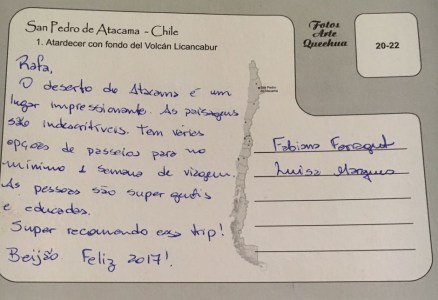 San Pedro de Atacama - Chile
1. Atardecer con fondo del Volcán Licancabur
Fotos
Arte
Quechua
20-22
San Pedro
de Atacama
Rafa,
O deserto do Atacama é um
lugar impressionante. As paisagens
são indescritíveis. Tem vários
opções de passeios para no
mínimo 1 semana de viagem.
As pessoas são super gentis
e educadas.
Super recomendo essa trip!
Beijão Feliz 2017!
Fabiana
Luisa Marques